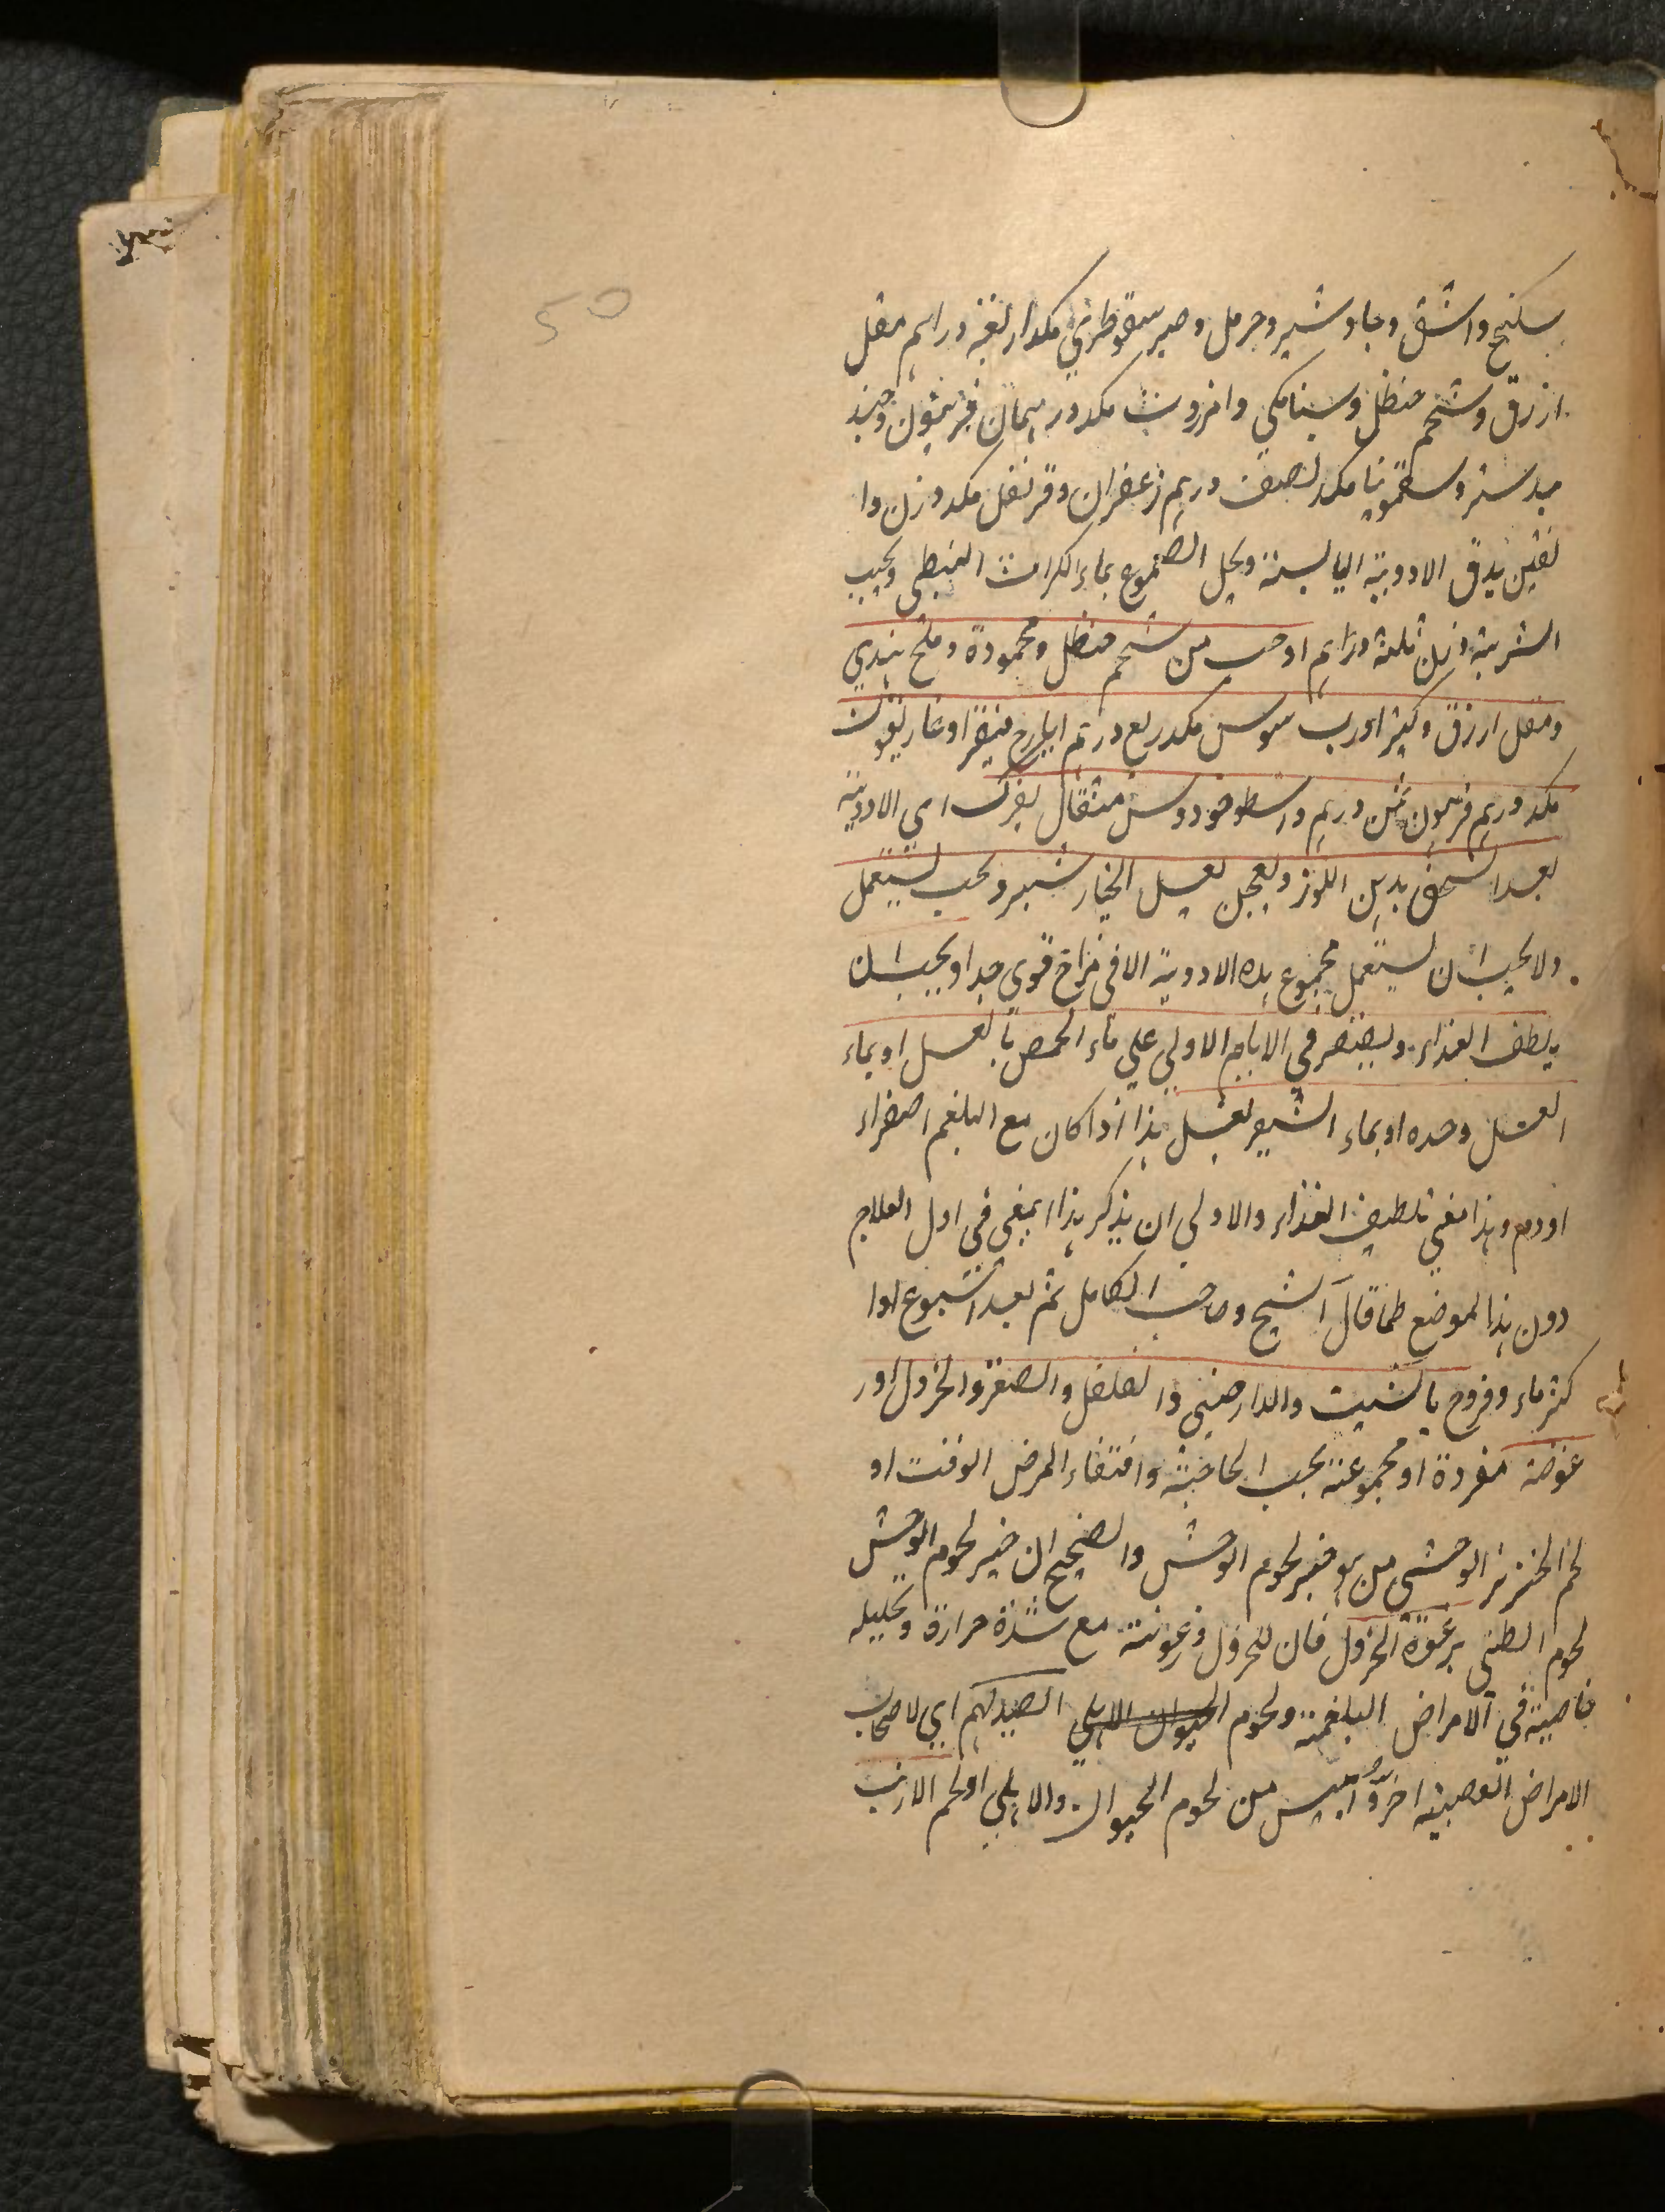 50
سكبنج واشق وجاوشير وحرمل وصبر سقوطري مكد اربعة دراهم مقل
ازرق وشحم حنظل وسنامكي وانزروت مكد درهمان فربيون وجند
بيدستر وسقمونيا مكد نصف درهم زعفران وقرنفل مكد وزن دا
نقين يدق الادوية اليابسة ويحل الصموغ بماء الكراث النبطي ويحبب
الشربة وزن ثلثة دراهم او حب من شحم حنظل ومحمودة وملح هندي
ومقل ازرق وكثيرا ورب سوس مكد ربع درهم ايارج فيقرا وغاريقون
مكد درهم فربيون ثمن درهم واسطوخودوس مثقال يفرك اي الادوية
بعد السحق بدهن اللوز ويعجن بعسل الخيارشنبر ويحبب يستعمل
ولا يجب ان يستعمل مجموع هذه الادوية الا في مزاج قوي جدا ويجب ان
يلطف الغذاء ويقتصر في الايام الاولي علي ماء الحمص بالعسل او بماء
العسل وحده او بماء الشعير بعسل هذا اذا كان مع البلغم صفراء
او دم وهذا نعني تلطيف الغذاء والاولي ان يذكر هذا المعني في اول العلاج
دون هذا الموضع كما قال الشيخ وصاحب الكامل ثم بعد اسبوع اذا
كثر ماء وفروج بالشبت والدارصيني والفلفل والصعتر والخردل اور
غوته مفردة او مجموعة بحسب الحاجة واقتضاء المرض الوقت او
لحم الخنزير الوحشي من هو خير لحوم الوحش والصحيح ان خير لحوم الوحش
لحوم الظبي برغوة الخردل فان للخردل ورغوته مع شدة حرارة وتحليله
خاصية في الامراض البلغمية ولحوم الحيوان الاهلي الصيد لهم اي لاصحاب
الامراض العصبية اخر وايبس من لحوم الحيوان والاهلي او لحم الارنب